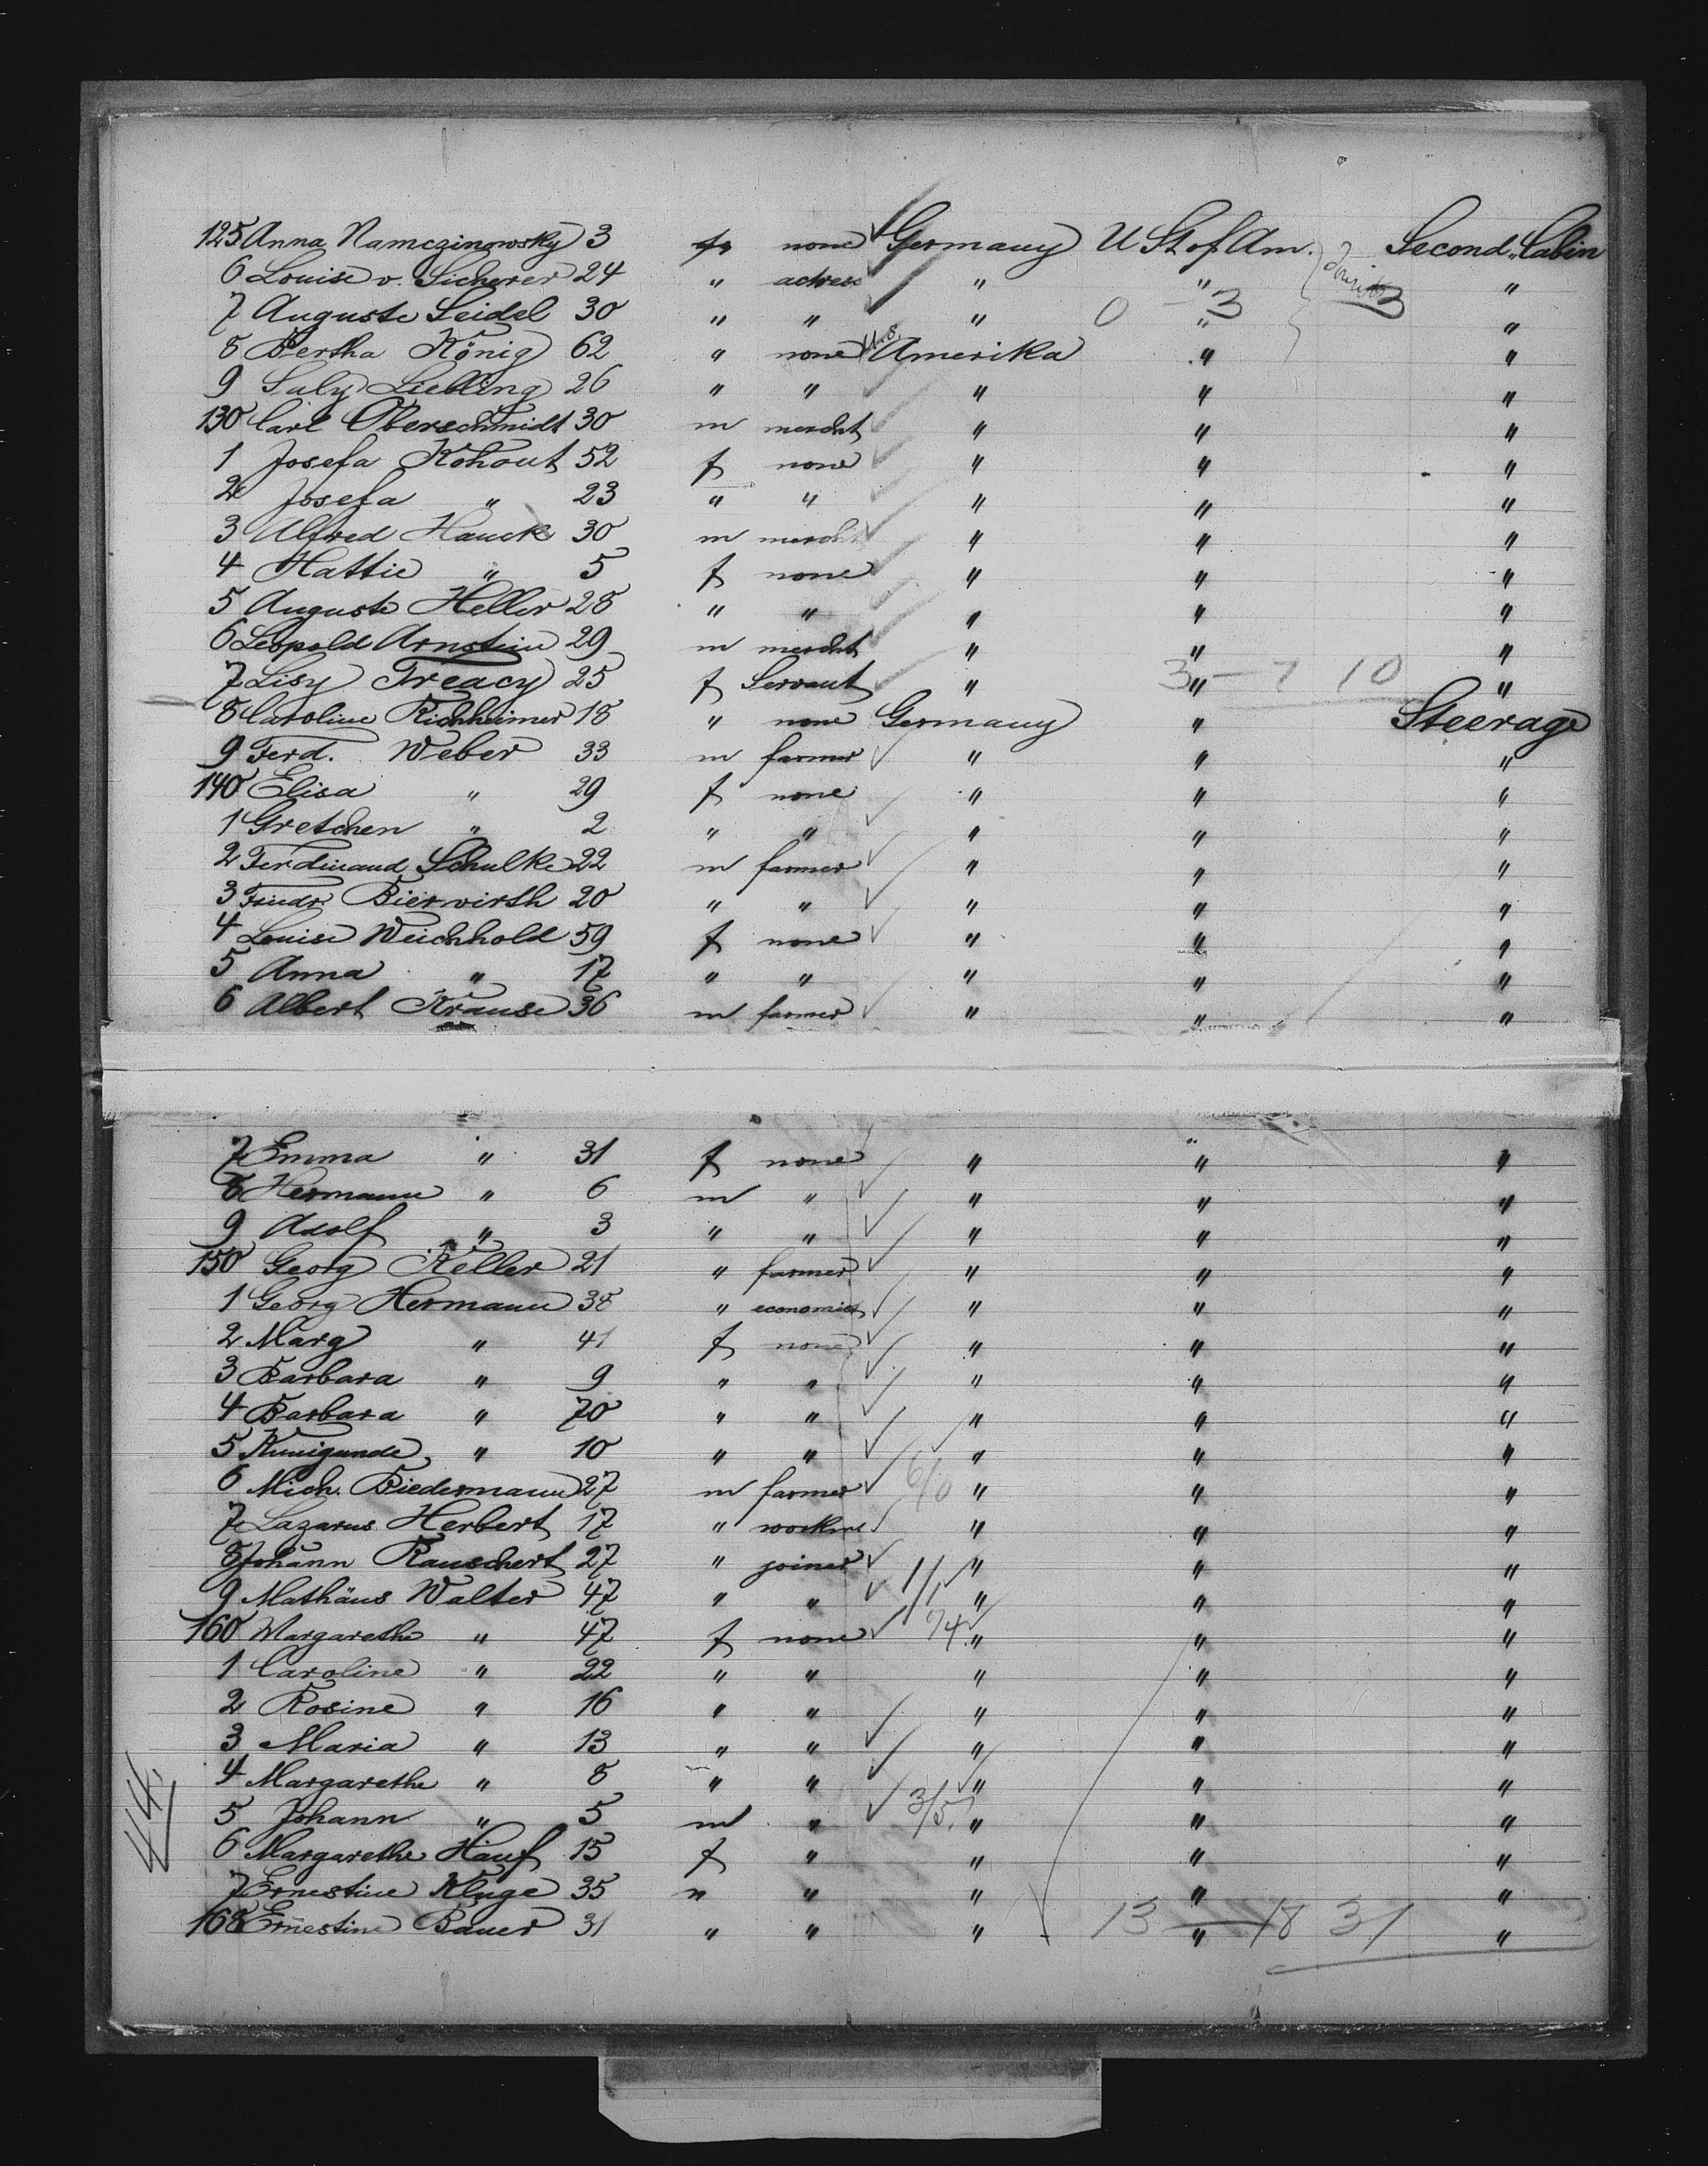 125 Anna Namczinowsky 3 f none Germany U St of Am. Second Cabin
6 Louise v. Sicherer 24 " actress " " "
7 Auguste Seidel 30 " " " " " 0 – 3 3
8 Bertha König 62 " none U.S. Amerika " "
9 Saly Liebling 26 " " " " "
130 Carl Oberschmidt 30 m mercht " " "
1 Josefa Kohout 52 f none " " "
2 Josefa " 23 " " " " "
3 Alfred Hauck 30 m mercht " " "
4 Hattie " 5 f none " " "
5 Auguste Heller 28 " " " " "
6 Leopold Arnstein 29 m mercht " " "
7 Lisy Treacy 25 f Servant " " " 3 – 7 10
8 Caroline Richheimer 18 " none Germany " Steerage
9 Ferd. Weber 33 m farmer " " "
140 Elisa " 29 f none " " "
1 Gretchen " 2 " " " " "
2 Ferdinand Schulke 22 m farmer " " "
3 Friedr. Bierwirth 20 " " " " "
4 Louise Weichhold 59 f none " " "
5 Anna " 17 " " " " "
6 Albert Krause 36 m farmer " " "
7 Emma " 31 f none " " "
8 Hermann " 6 m " " " "
9 Adolf " 3 " " " " "
150 Georg Keller 21 " farmer " " "
1 Georg Hermann 38 " economist " " "
2 Marg " 41 f none " " "
3 Barbara " 9 " " " " "
4 Barbara " 70 " " " " "
5 Kunigunde " 10 " " " " "
6 Mich. Biedermann 27 m farmer 6/0 " " "
7 Lazarus Herbert 17 " workm " " "
8 Johann Rauschert 27 " joiner " " "
9 Mathäus Walter 47 " " 11/1 " " "
160 Margarethe " 47 f none 74 " " "
1 Caroline " 22 " " " " "
2 Rosine " 16 " " " " "
3 Maria " 13 " " " " "
4 Margarethe " 8 " " " " "
5 Johann " 5 m " 3/5 " " "
6 Margarethe Hauf 15 f " " " "
7 Ernestine Kluge 35 " " " " "
168 Ernestine Bauer 31 " " " " " 13 – 18 31
44.